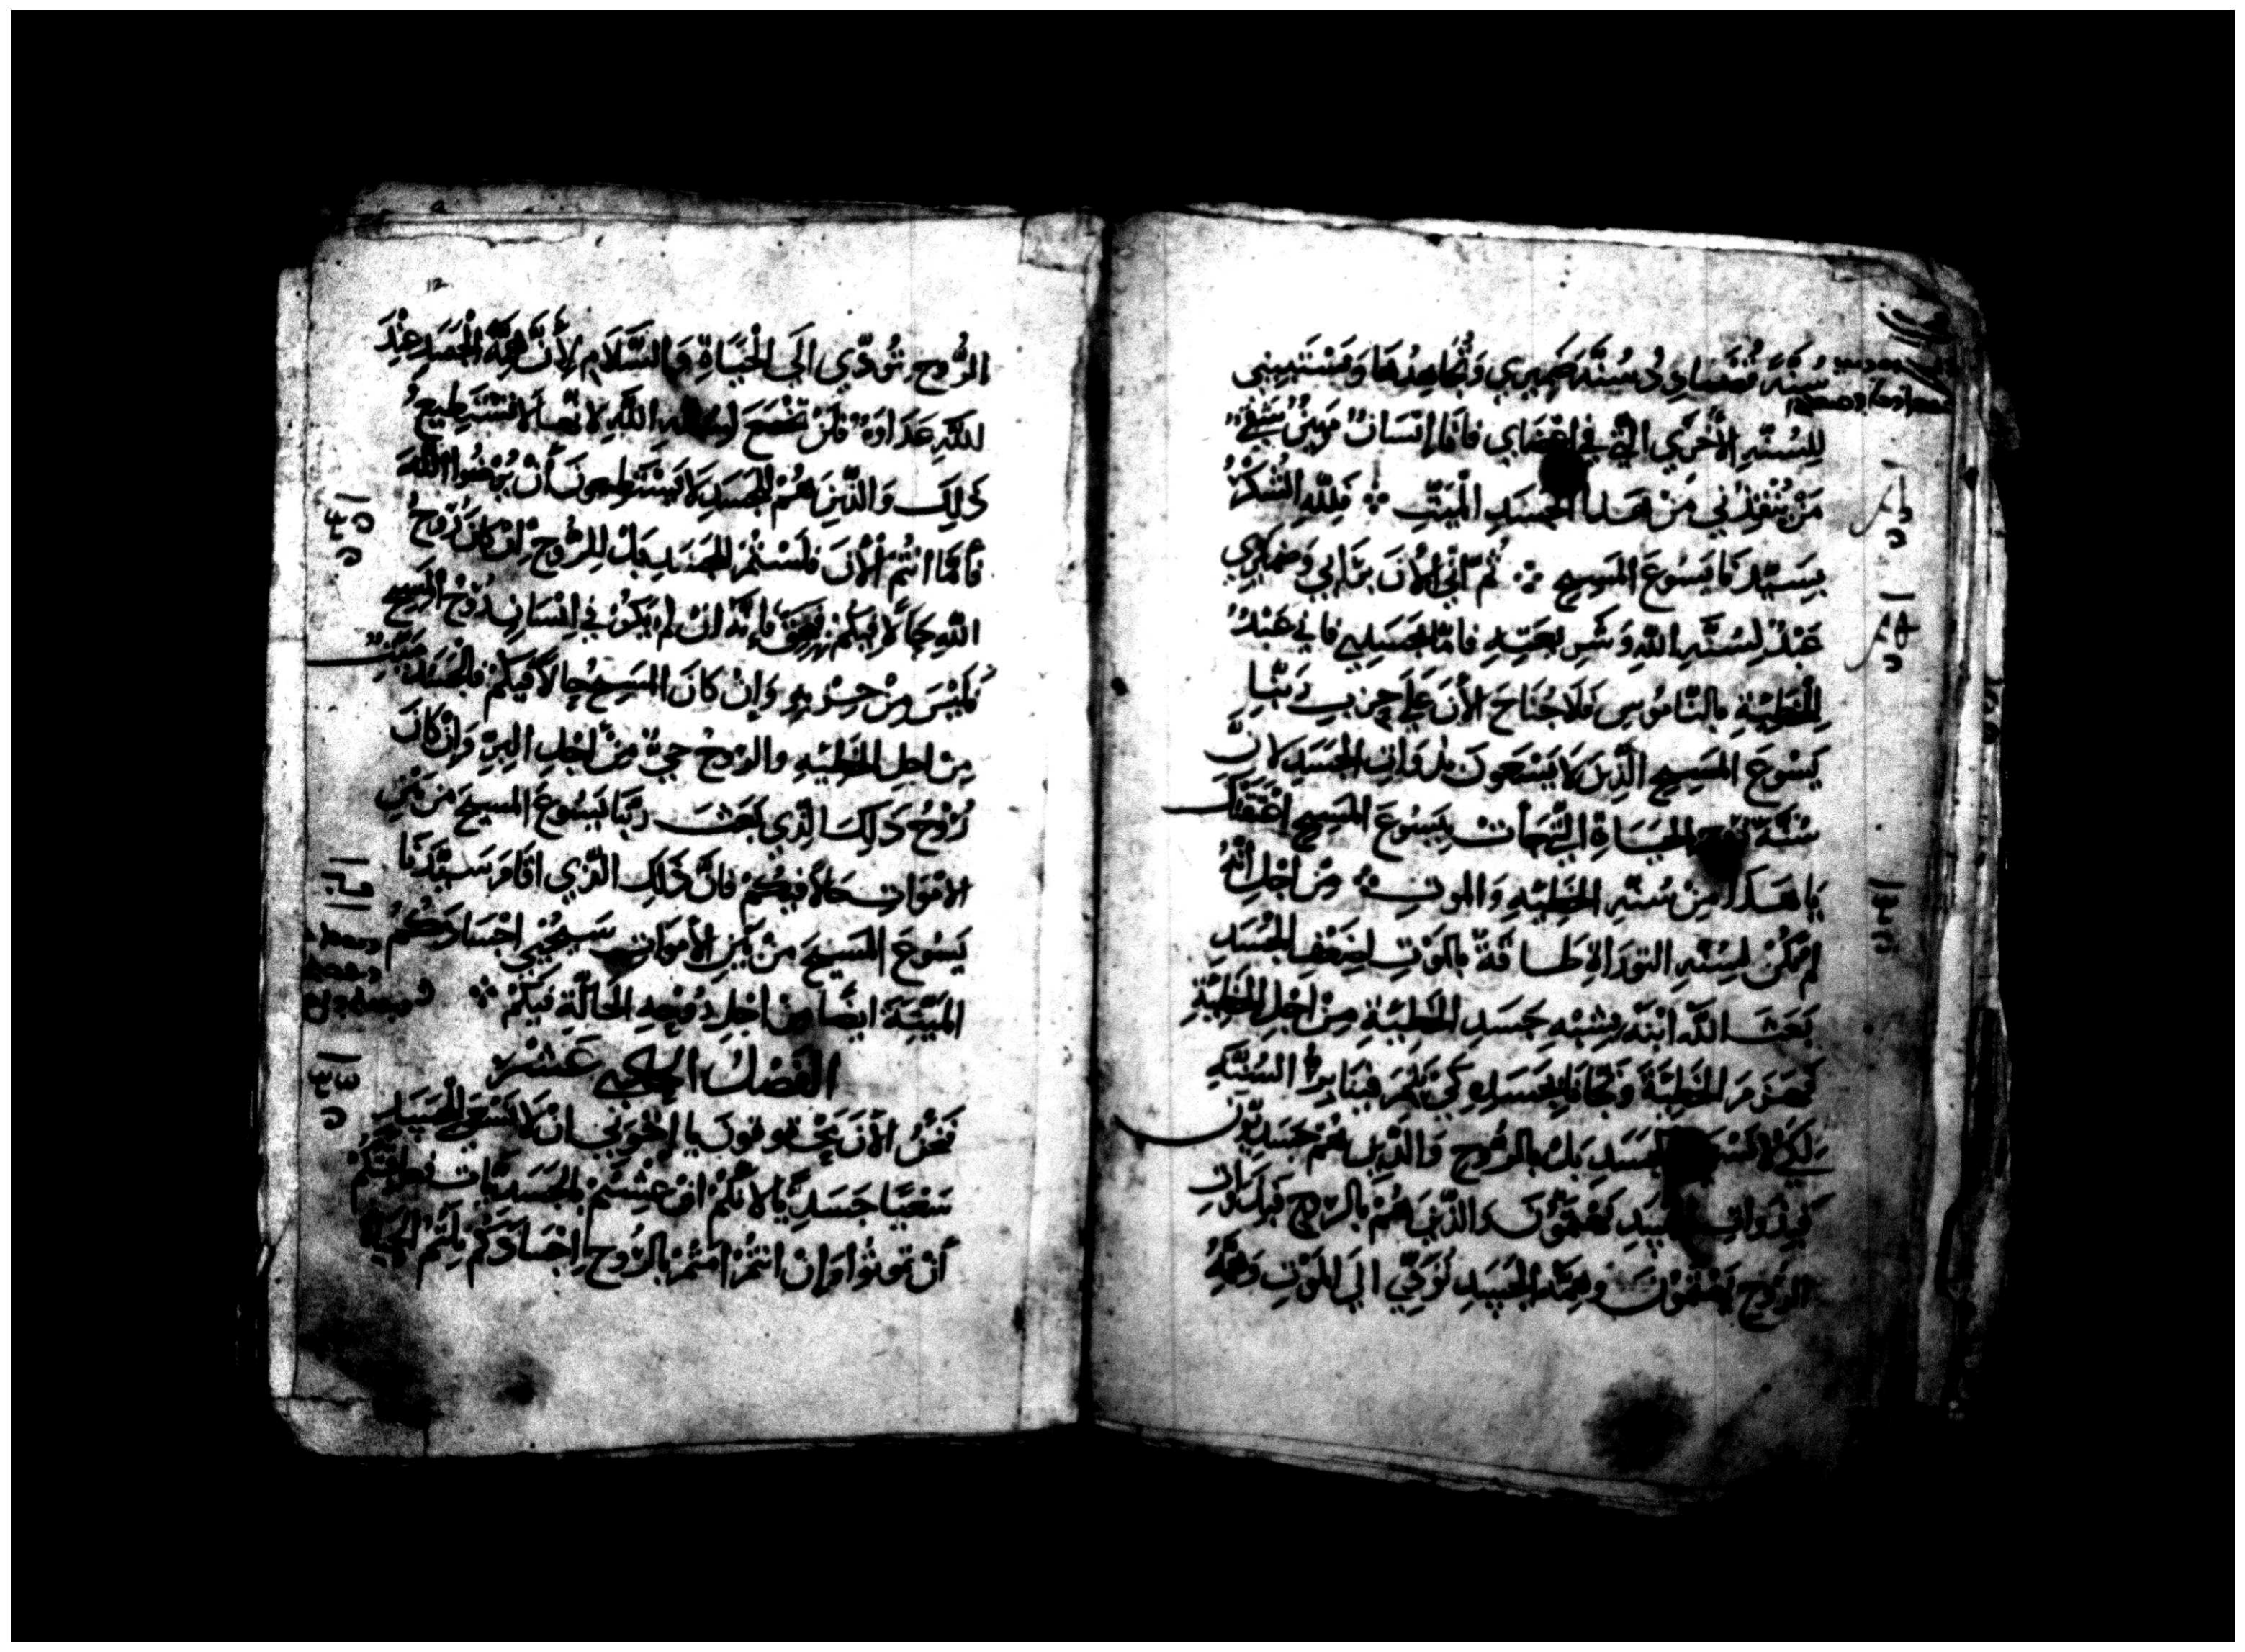 سُنَّةً تُضادِدُ سُنَّةَ ضَمِيري وَتُجَاهِدُهَا وَتَسْتَبِيني
لِلسُنَّهِ الأُخْرَي الَّتي في اعْضَاي فَانَا إِنْسَانٌ مَهِينٌ شَقِيٌّ
مَنْ يُنْقِذُني مَنْ هَذا الجَسَدِ الْمَيّتِ ፨ فَلِلّهِ الشُكْرُ
بِسَيّدِنَا يَسُوعَ المَسِيحِ ፨ ثُم انّي الآنَ بِرَايي وَضَمِيري
عَبْدٌ لِسُنَّهِ اللّهِ وَشَرِيعَتِهِ فامّا بجَسَدِي فاني عَبْدُ
لِلْخَطِيَّةِ بالنّامُوسِ فَلَا جُنَاحَ الآنَ عَلَي حِزبِ رَبّنا
يَسُوعَ المَسِيحِ الَّذِينَ لا يَسْعَونَ بذَوَاتِ الجَسَدِ لانَّ
سُنَّةَ رُوحِ الحَيَاةِ الَّتي جَأتْ بيَسُوعَ المَسِيحِ اعْتَقَتْكَ
يا هَذا مِنْ سُنَّهِ الخَطِيَّهِ وَالموتِ ፨ مِنْ اجْلِ انَّهُ
لم تَكُنْ لِسُنَّهِ التورَاةِ طاقَةٌ بِالمَوْتِ لِضَعْفِ الجَسَدِ
بَعَثَ اللّه ابْنَهُ بِشِبْهِ جَسَدِ الخَطِيَّةِ مِنْ اجْلِ الخَطِيَّةِ
لِكَيْ لا نَسْعَي بالجَسَدِ بَلْ بالرُّوحِ وَالَّذِينَ هُمْ جَسَدِيّونَ
فَبِذَواتِ الجَسَدِ يَهْتَمُّونَ وَالَّذِينَ هُمْ بِالرّوحِ فَبِذَوَاتِ
الرُّوحِ يَهْتَمُّونَ وَهِمَّه الجَسَدِ تُوَدّي الَي المَوْتِ وَهِمَّهُ
الرُّوحِ تُؤدّي الَي الْحَيَاةِ وَالسَّلَامِ لِأَنَّ هِمَّةَ الْجَسَدِ عِنْدَ
اللّهِ عَدَاوَهٌ فَلَنْ تَخْضَعَ لِسُنَّهِ اللّهِ لانّها لا تَسْتَطِيعُ
ذَلِكَ وَالَّذِينَ هُمْ للجَسَدِ لا يَسْتَطِيعونَ أَنْ يُرْضُوا اللّهَ
فَأمَّا انْتُم الْأَنَ فَلَسْتُمْ للجَسَدِ بَلْ لِلرُّوحِ إِنْ كانَ رُوحُ
اللّهِ حالًا فيكُمْ بحَقٍ فإنَّهُ انْ لم يَكُنْ في إنْسَانٍ رُوحُ المَسِيحِ
فَلَيْسَ مِنْ حِزْبِهِ وَإنْ كانَ المَسِيحُ حالًا فيكُمْ فالجَسَدُ مَيِّتٌ
مِنْ اجلِ الخَطِيَّهِ والرّوحُ حيٌّ مِنْ اجْلِ البِرِّ وَإنْ كَانَ
رُوْحُ ذَلِكَ الَّذِي بَعَثَ رَبَّنا يَسُوعَ المسيحَ من بَيْنِ
الامْوَاتِ حالًا فيكُمْ فانَّ ذَلِكَ الَّذِي اقَامَ سَيّدَنا
يَسُوعَ المَسِيحَ مِنْ بَيْنِ الأموَاتِ سَيُحْيِي اجْسَادَكُمُ
المَيّتَةَ ايضًا مِنْ اجْلِ رُوْحِهِ الحَالّةِ فيكُمْ ፨
الفَصْلُ الحادي عَشْر
فَنَحْنُ الأنَ مَحْقُوقونَ يا إخْوَتي انْ لا نَسْعَي للجَسَدِ
سَعْيًا جَسَدِيًّا لانّكُمْ انْ عِشْتُمْ بالجَسَد
أنْ تَموتُوا وَإنْ انْتُمْ امَتُّمْ بالرّوحِ اجْسَادَكُمْ